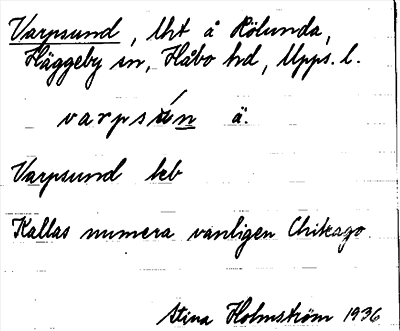 Varpsund, lht å Rölunda,
Häggeby sn, Håbo hd, Upps. l.
varpsún ä.
Varpsund keb
Kallas numera vanligen Chikago.
Stina Holmström 1936